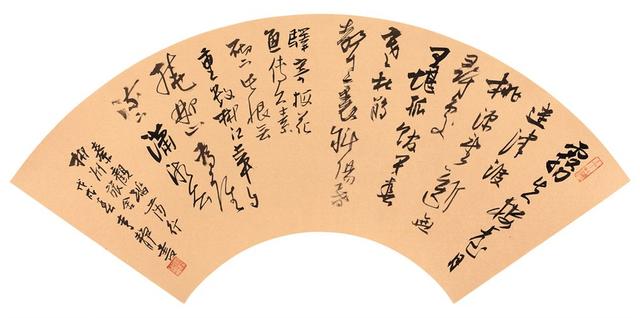 霧失樓台月
迷津渡
桃源望斷無
尋處
可堪孤館閉春
寒杜鵑
聲里斜陽暮
驛寄梅花
魚傳尺素
砌成此恨無
重數郴江幸自
繞郴山為誰
流下瀟湘去
秦觀踏莎行
郴州旅舍